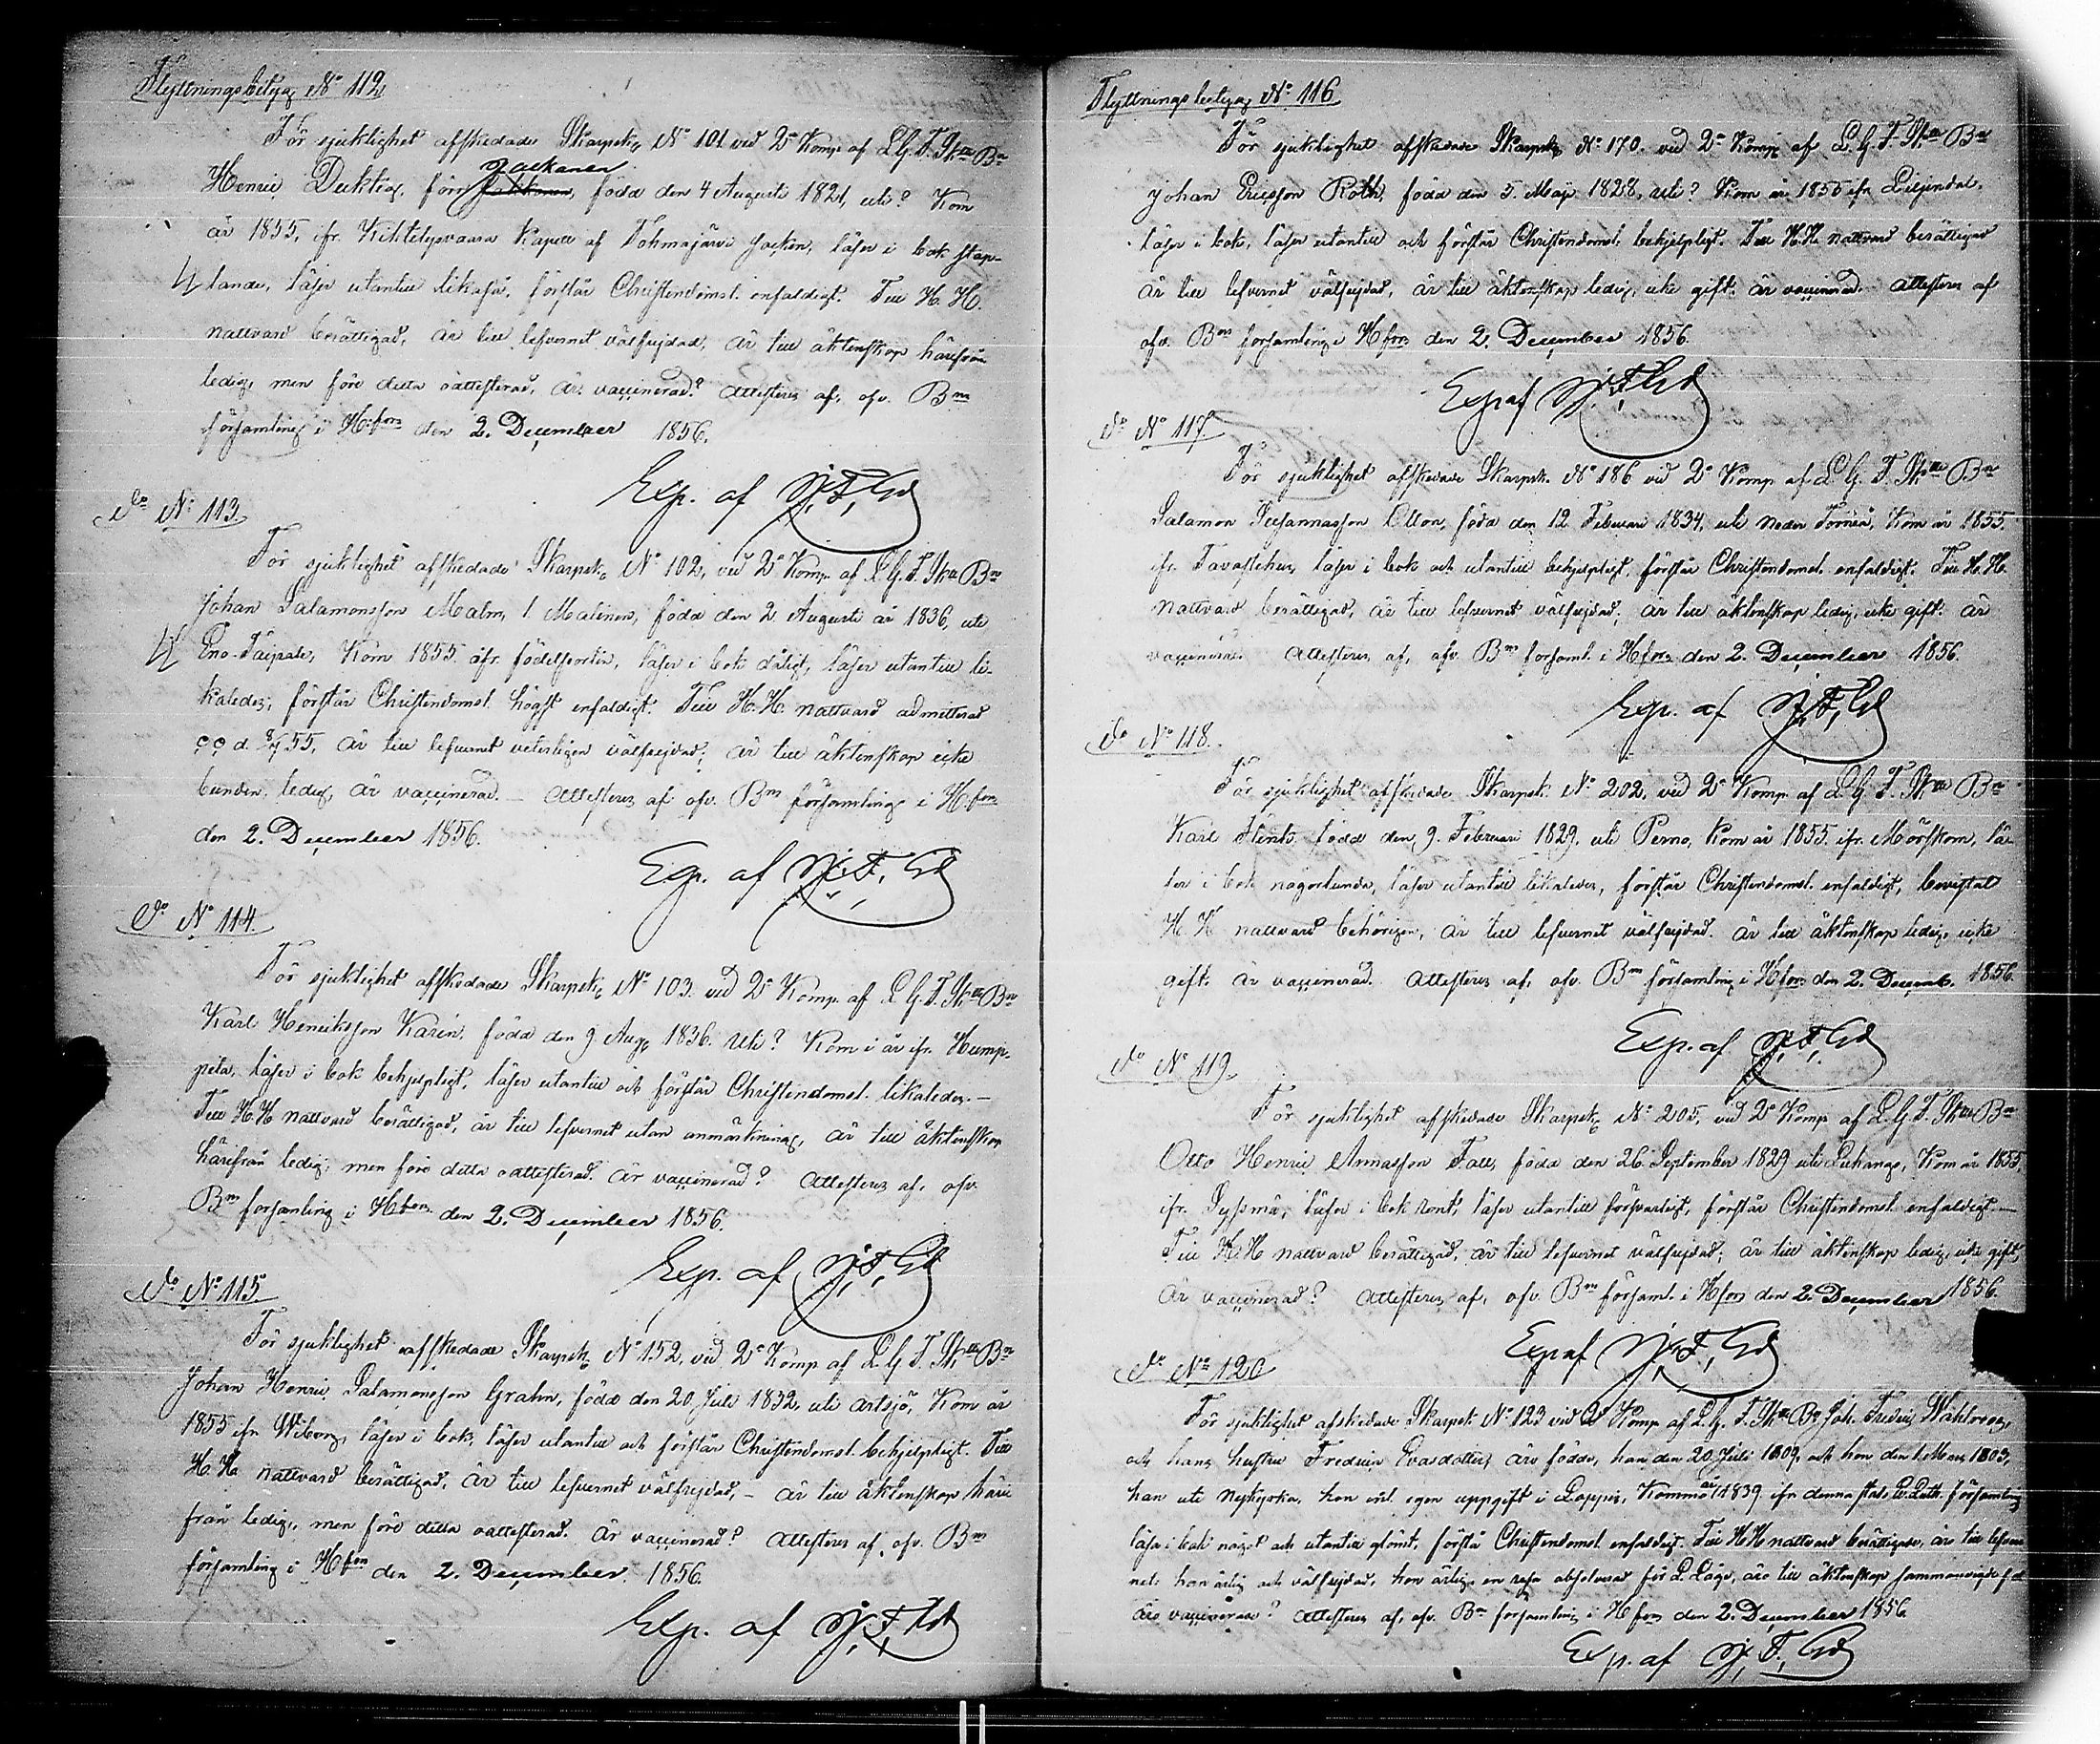 Flyttningsbetyg No 112
För sjuklighet afskedade Skarpsk. No 101 vid 2a Komp. af L.G.F. Sk.tte Bn
Jackanen
Henric Duktig, förr född den 4 Augusti 1821, uti? Kom
år 1855, ifr. Kihtelysvaara Kapell af Tohmajärvi Socken, läser i bok stap-
lande, läser utantill likaså, förstår Christendomsl. enfaldigt. Till H. H.
nattvard berättigad, är till lefvernet välfrejdad, är till äktenskap härifrån
ledig, men före detta oattesterad, är vaccinerad? Attesteras af, ofv. Bns
församling i H:fors den 2. December 1856.
Exp. af
do No 113.
För sjuklighet afskedade Skarpsk. No 102, vid 2a Komp. af L.G.F. Sk.tte Bn
Johan Salamonsson Malm, l. Malinen, född den 2. Augusti år 1836, uti
Eno-Taipale, Kom 1855. ifr. födelseorten, läser i bok dåligt, läser utantill li-
kaledes, förstår Christendomsl. högst enfaldigt. Till H.H. nattvard admitterad
d. 55, är till lefvernet veterligen välfrejdad; är till äktenskap icke
bunden. ledig, är vaccinerad. – Attesteras af ofv. Bns församling i H.fors
den 2. December 1856.
Exp. af
do No 114.
För sjuklighet afskedade Skarpsk. No 103. vid 2a Komp. af L.G.F. Sk.tte Bn
Karl Henriksson Karin, född den 9 Aug. 1836. uti? Kom i år ifr. Hump-
pila, läser i bok behjelpligt, läser utantill och förstår Christendomsl. likaledes. –
Till H.H. nattvard berättigad, är till lefvernet utan anmärkning, är till äktenskap
härifrån ledig, men före detta oattesterad. är vaccinerad? Attesteras af, ofv.
Bns församling i H:fors den 2. December 1856.
Exp. af
do No 115.
För sjuklighet afskedade Skarpsk. No 152, vid 2a Komp. af L.G.F. Sk.tte Bn
Johan Henric Salamonsson Grahn, född den 20 Juli 1832, uti Artsjö, Kom år
1855 ifr. Wiborg, läser i bok, läser utantill och förstår Christendomsl. behjelpligt. Till
H.H. nattvard berättigad, är till lefvernet välfrejdad, – är till äktenskap häri-
från ledig, men före detta oattesterad. är vaccinerad? Attesteras af, ofv. Bns
församling i H:fors den 2. December. 1856.
Exp. af
Flyttningsbetyg No 116
För sjuklighet afskedade Skarpsk. No 170. vid 2a Komp. af L.G.F. Sk.tte Bn
Johan Ericsson Roth, född den 5. Maji 1828, uti? Kom år 1855 ifr. Liljendal,
läser i bok, läser utantill och förstår Christendomsl. behjelpligt. Till H.H. nattvard berättigad
är till lefvernet välfrejdad, är till äktenskap ledig, icke gift. är vaccinerad. Attesteras af
ofv. Bns församling i H:fors den 2. December 1856.
Exp af
do No 117.
För sjuklighet afskedade Skarpsk. No 186 vid 2a Komp. af L.G.F. Sk.tte Bn
Salamon Susannasson Ollon, född den 12 Februari 1834, uti Neder Torneå, Kom år 1855
ifr. Tavastehus, läser i bok och utantill behjelpligt, förstår Christendomsl. enfaldigt. Till H.H.
nattvard berättigad, är till lefvernet välfrejdad, är till äktenskap ledig, icke gift. är
vaccinerad. Attesteras af, ofv. Bns församl. i H:fors den 2. December 1856.
Exp. af
do No 118.
För sjuklighet afskedade Skarpsk. No 202, vid 2a Komp. af L.G.F. Sk.tte Bn
Karl Flink. född den 9. Februari 1829. uti Perno, Kom år 1855. ifr. Mörskom, lä-
ser i bok någorlunda, läser utantill likaledes, förstår Christendomsl. enfaldigt, bevistat
H.H. nattvard behörigen, är till lefvernet välfrejdad. är till äktenskap ledig, icke
gift. är vaccinerad. Attesteras af, ofv. Bns församling i H:fors den 2. Decemb. 1856.
Exp. af
do No 119.
För sjuklighet afskedade Skarpsk. No 205, vid 2a Komp. af L.G.F. Sk.tte Bn
Otto Henric Annasson Fall, född den 26. September 1829 uti Luhango, Kom år 1855.
ifr. Sysmä, läser i bok rent, läser utantill försvarligt, förstår Christendomsl. enfaldigt. –
Till H.H. nattvard berättigad, är till lefvernet välfrejdad; är till äktenskap ledig, icke gift,
är vaccinerad? Attesteras af, ofv. Bns församl. i H:fors den 2. December 1856.
Exp af
do No 120
För sjuklighet afskedade Skarpsk. No 123 vid 2a Komp. af L.G.F. Sk.tte Bn Joh. Fredric Wahlroos,
och hans hustru Fredrica Evasdotter, äro födde, han den 20 Juli 1809, och hon den 1 Mars 1803,
han uti Nykyrka, hon enl. egen uppgift i Loppis, Komma år 1839 ifr. denna stads E. Luth. församling
läsa i bok något och utantill glömt, förstå Christendomsl. enfaldigt. Till H.H. nattvard berättigade, äro till lefver-
net: han ärlig och välfrejdad, hon ärlig, en resa absolverad för L. Läge, äro till äktenskap sammanvigde
äro vaccinerade? Attesteras af, ofv. Bns församling i H:fors den 2. December 1856.
Exp. af